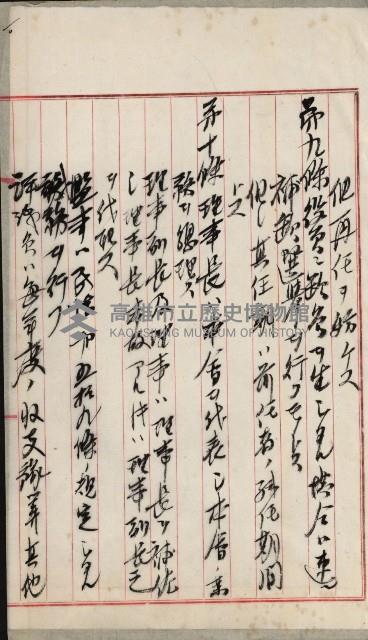 但再任ヲ妨ケス
第九條役員ニ欠員ヲ生シタル場合ハ速
補缺選擧ヲ行フモノトス
但シ其任期ハ前任者ノ殘任期間
トス
第十條理事長ハ本會ヲ代表シ本會ノ業
務ヲ總理ス
理事副長及理事ハ理事長ヲ補佐
シ理事長事故アル時ハ理事副長之
ヲ代理ス
監事ハ民法第五拾九條ノ規定ニヨル
職務ヲ行フ
評議員ハ每年度ノ收支豫算其他
高雄市立歷史博物館
KAOHSIUNG MUSEUM OF HISTORY